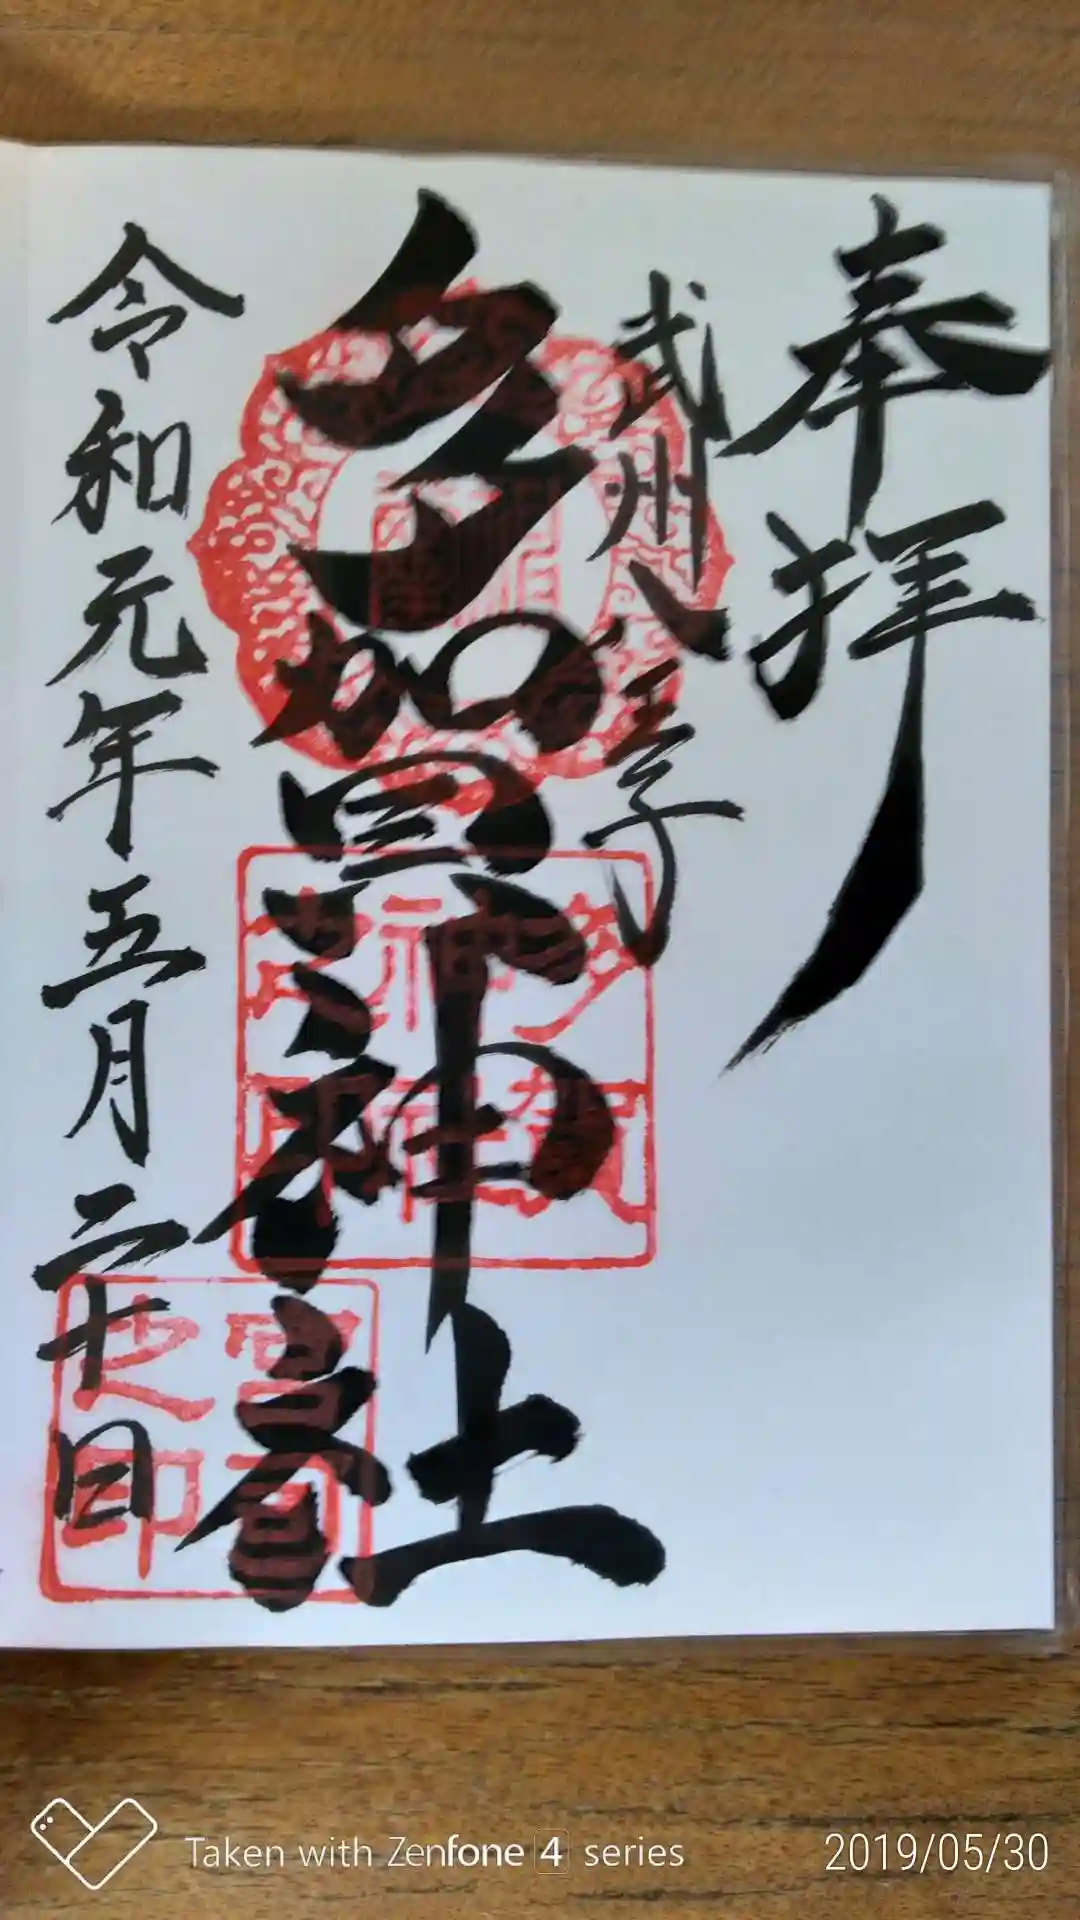 奉拝
武州八王子
多賀神社
令和元年五月二十日
宮司之印
Taken with Zenfone 4 series
2019/05/30